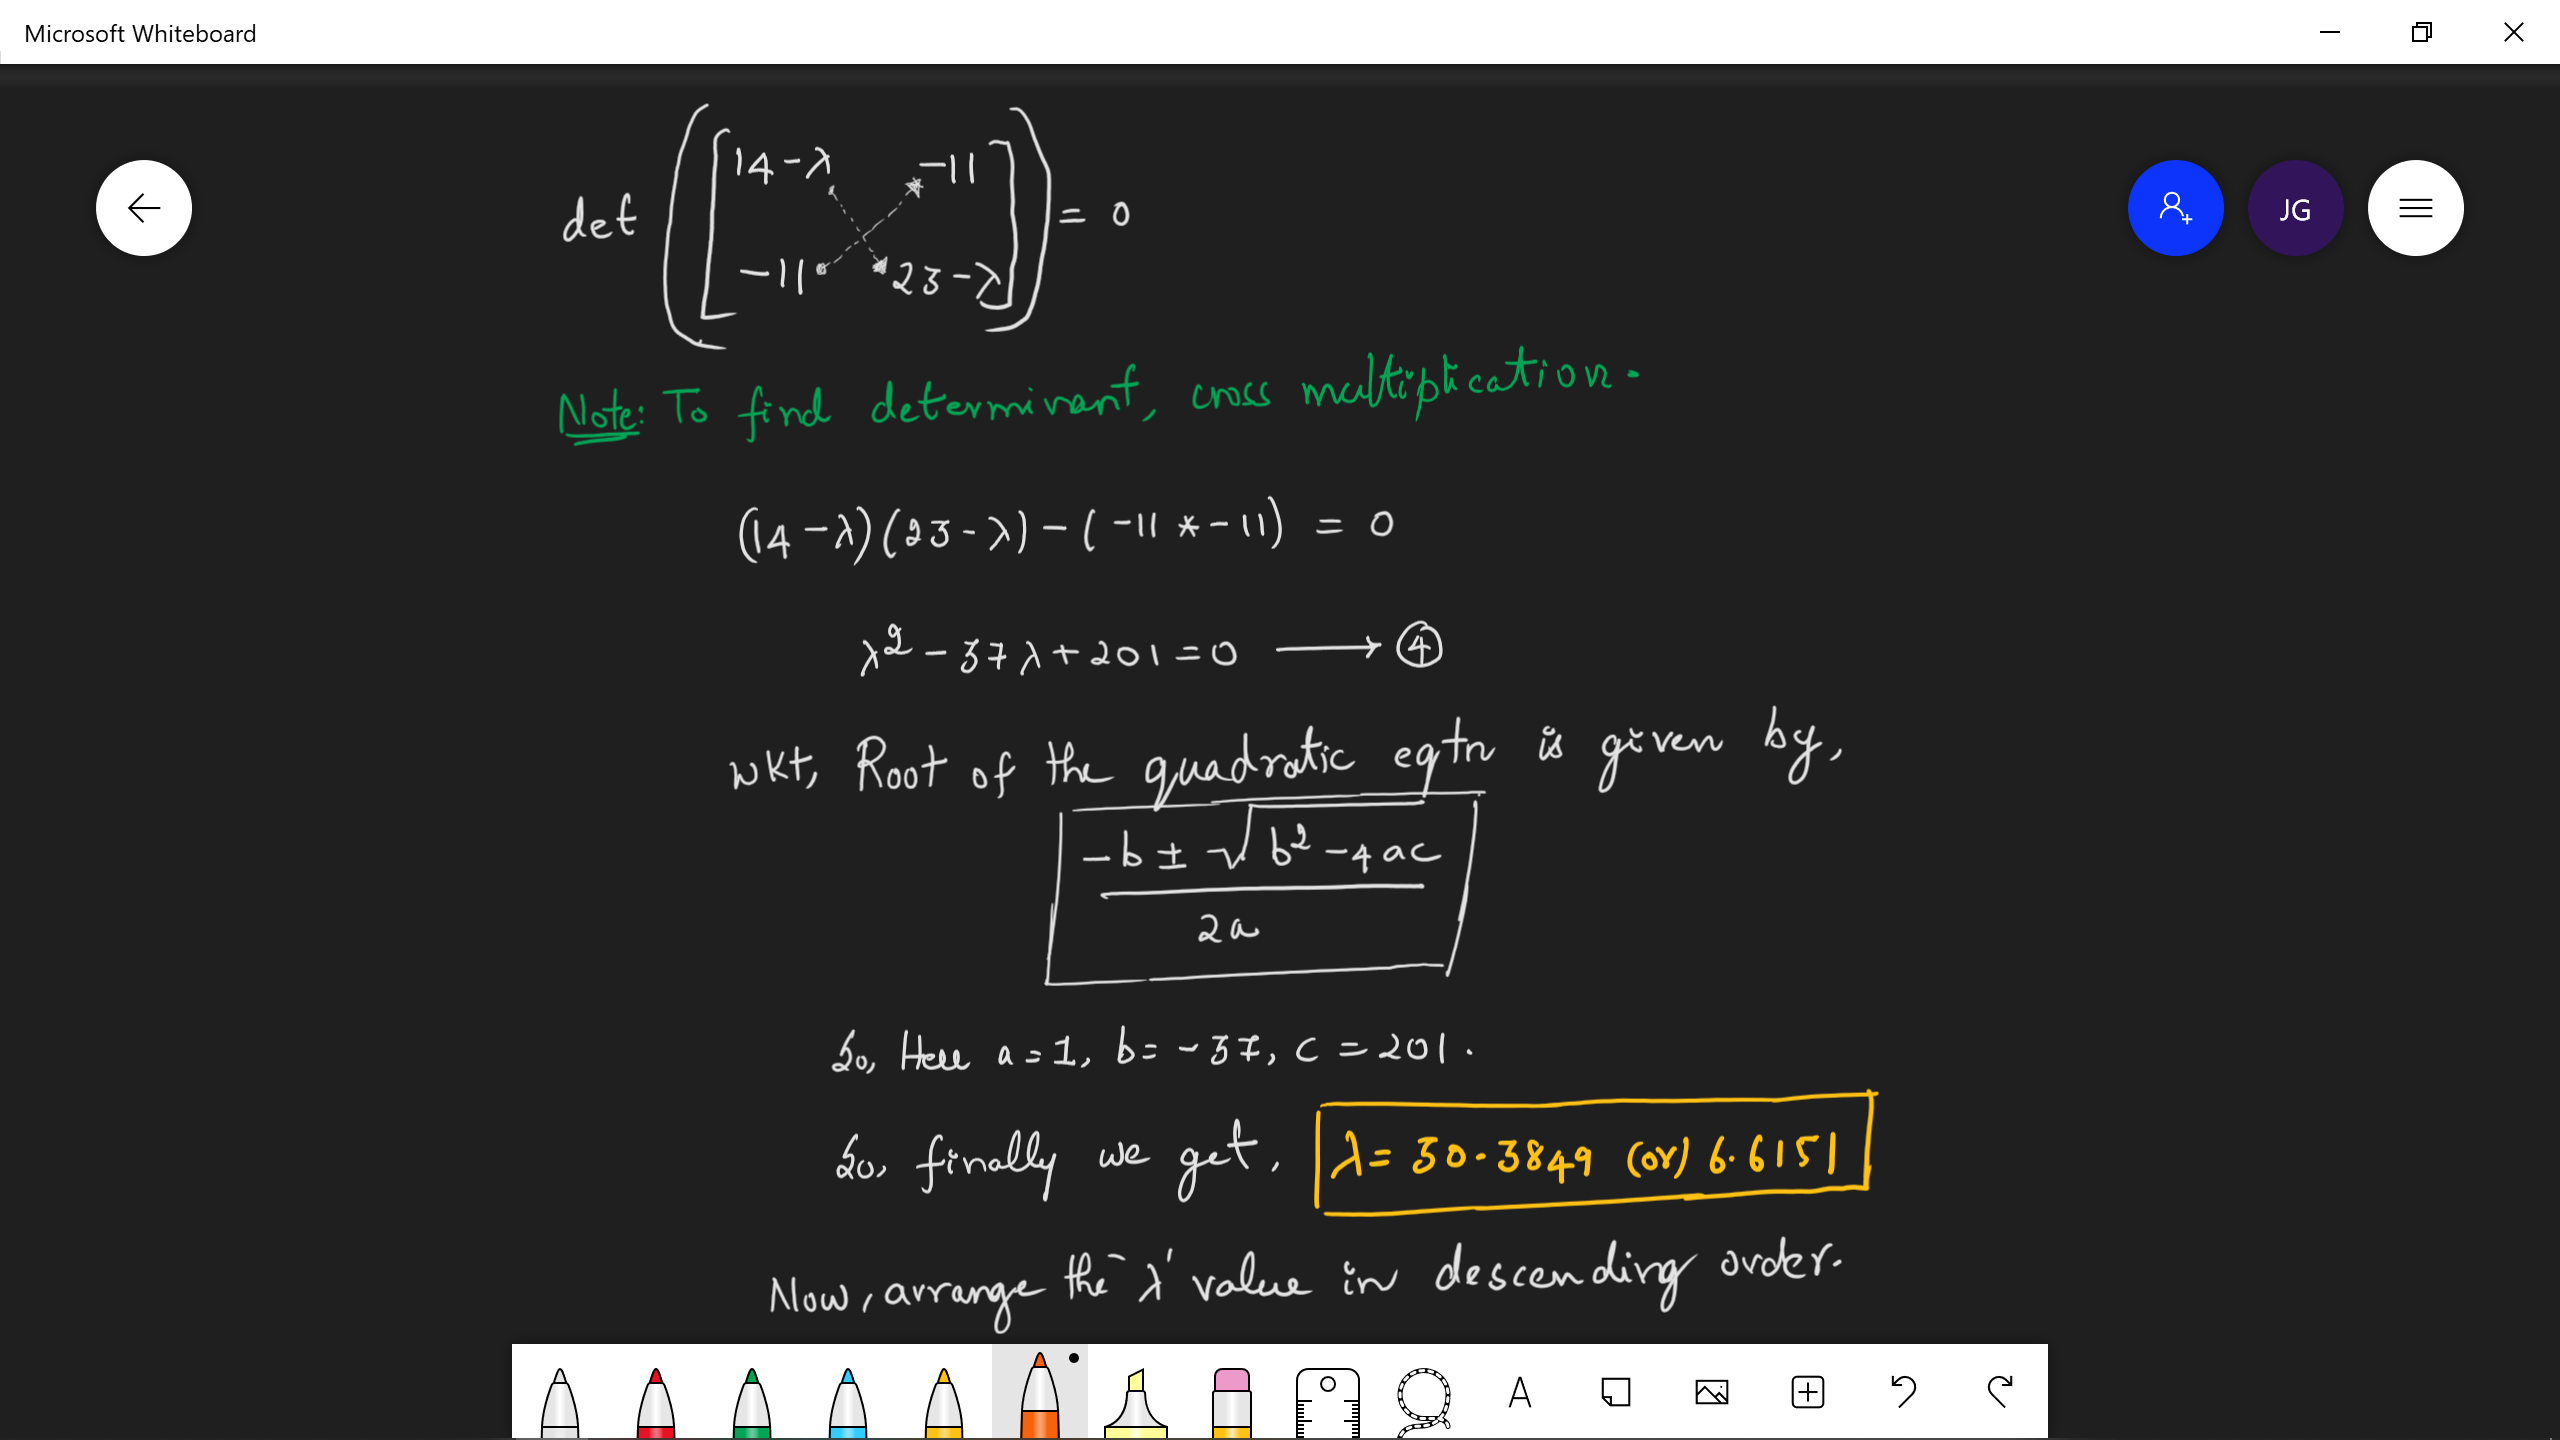 Microsoft Whiteboard
JG
det ([14-λ -11
-11 23-λ]) = 0
Note: To find determinant, cross multiplication.
(14-λ)(23-λ)-(-11*-11) = 0
λ²-37λ+201=0 → ④
wkt, Root of the quadratic eqtn is given by,
-b±√b²-4ac
2a
So, Here a=1, b=-37, c=201.
So, finally we get, λ= 30.3849 (or) 6.6151
Now, arrange the 'λ' value in descending order.
A